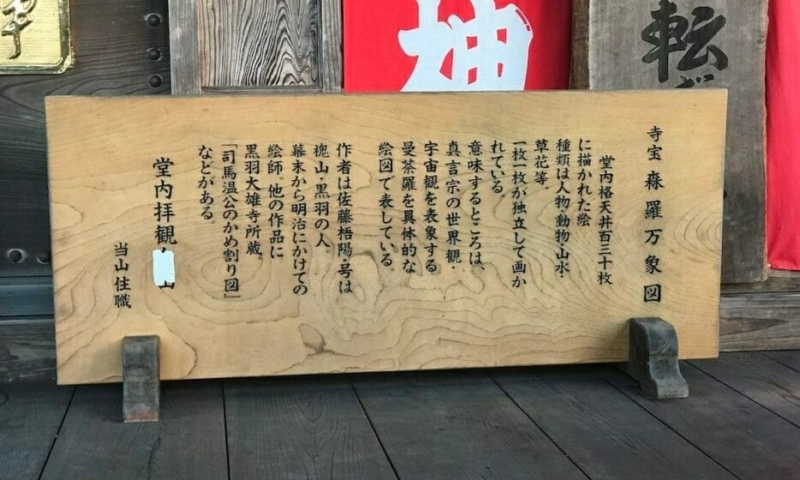 寺宝 森羅万象図
堂内格天井百三十枚
に描かれた絵
種類は人物・動物・山水・
草花等。
一枚一枚が独立して画か
れている。
意味するところは、
真言宗の世界観・
宇宙観を表象する
曼荼羅を具体的な
絵図で表している。
作者は佐藤梧陽・号は
山・黒羽の人。
幕末から明治にかけての
絵師。他の作品に
黒羽大雄寺所蔵。
「司馬温公のかめ割り図」
などがある。
堂内拝観
当山住職
転